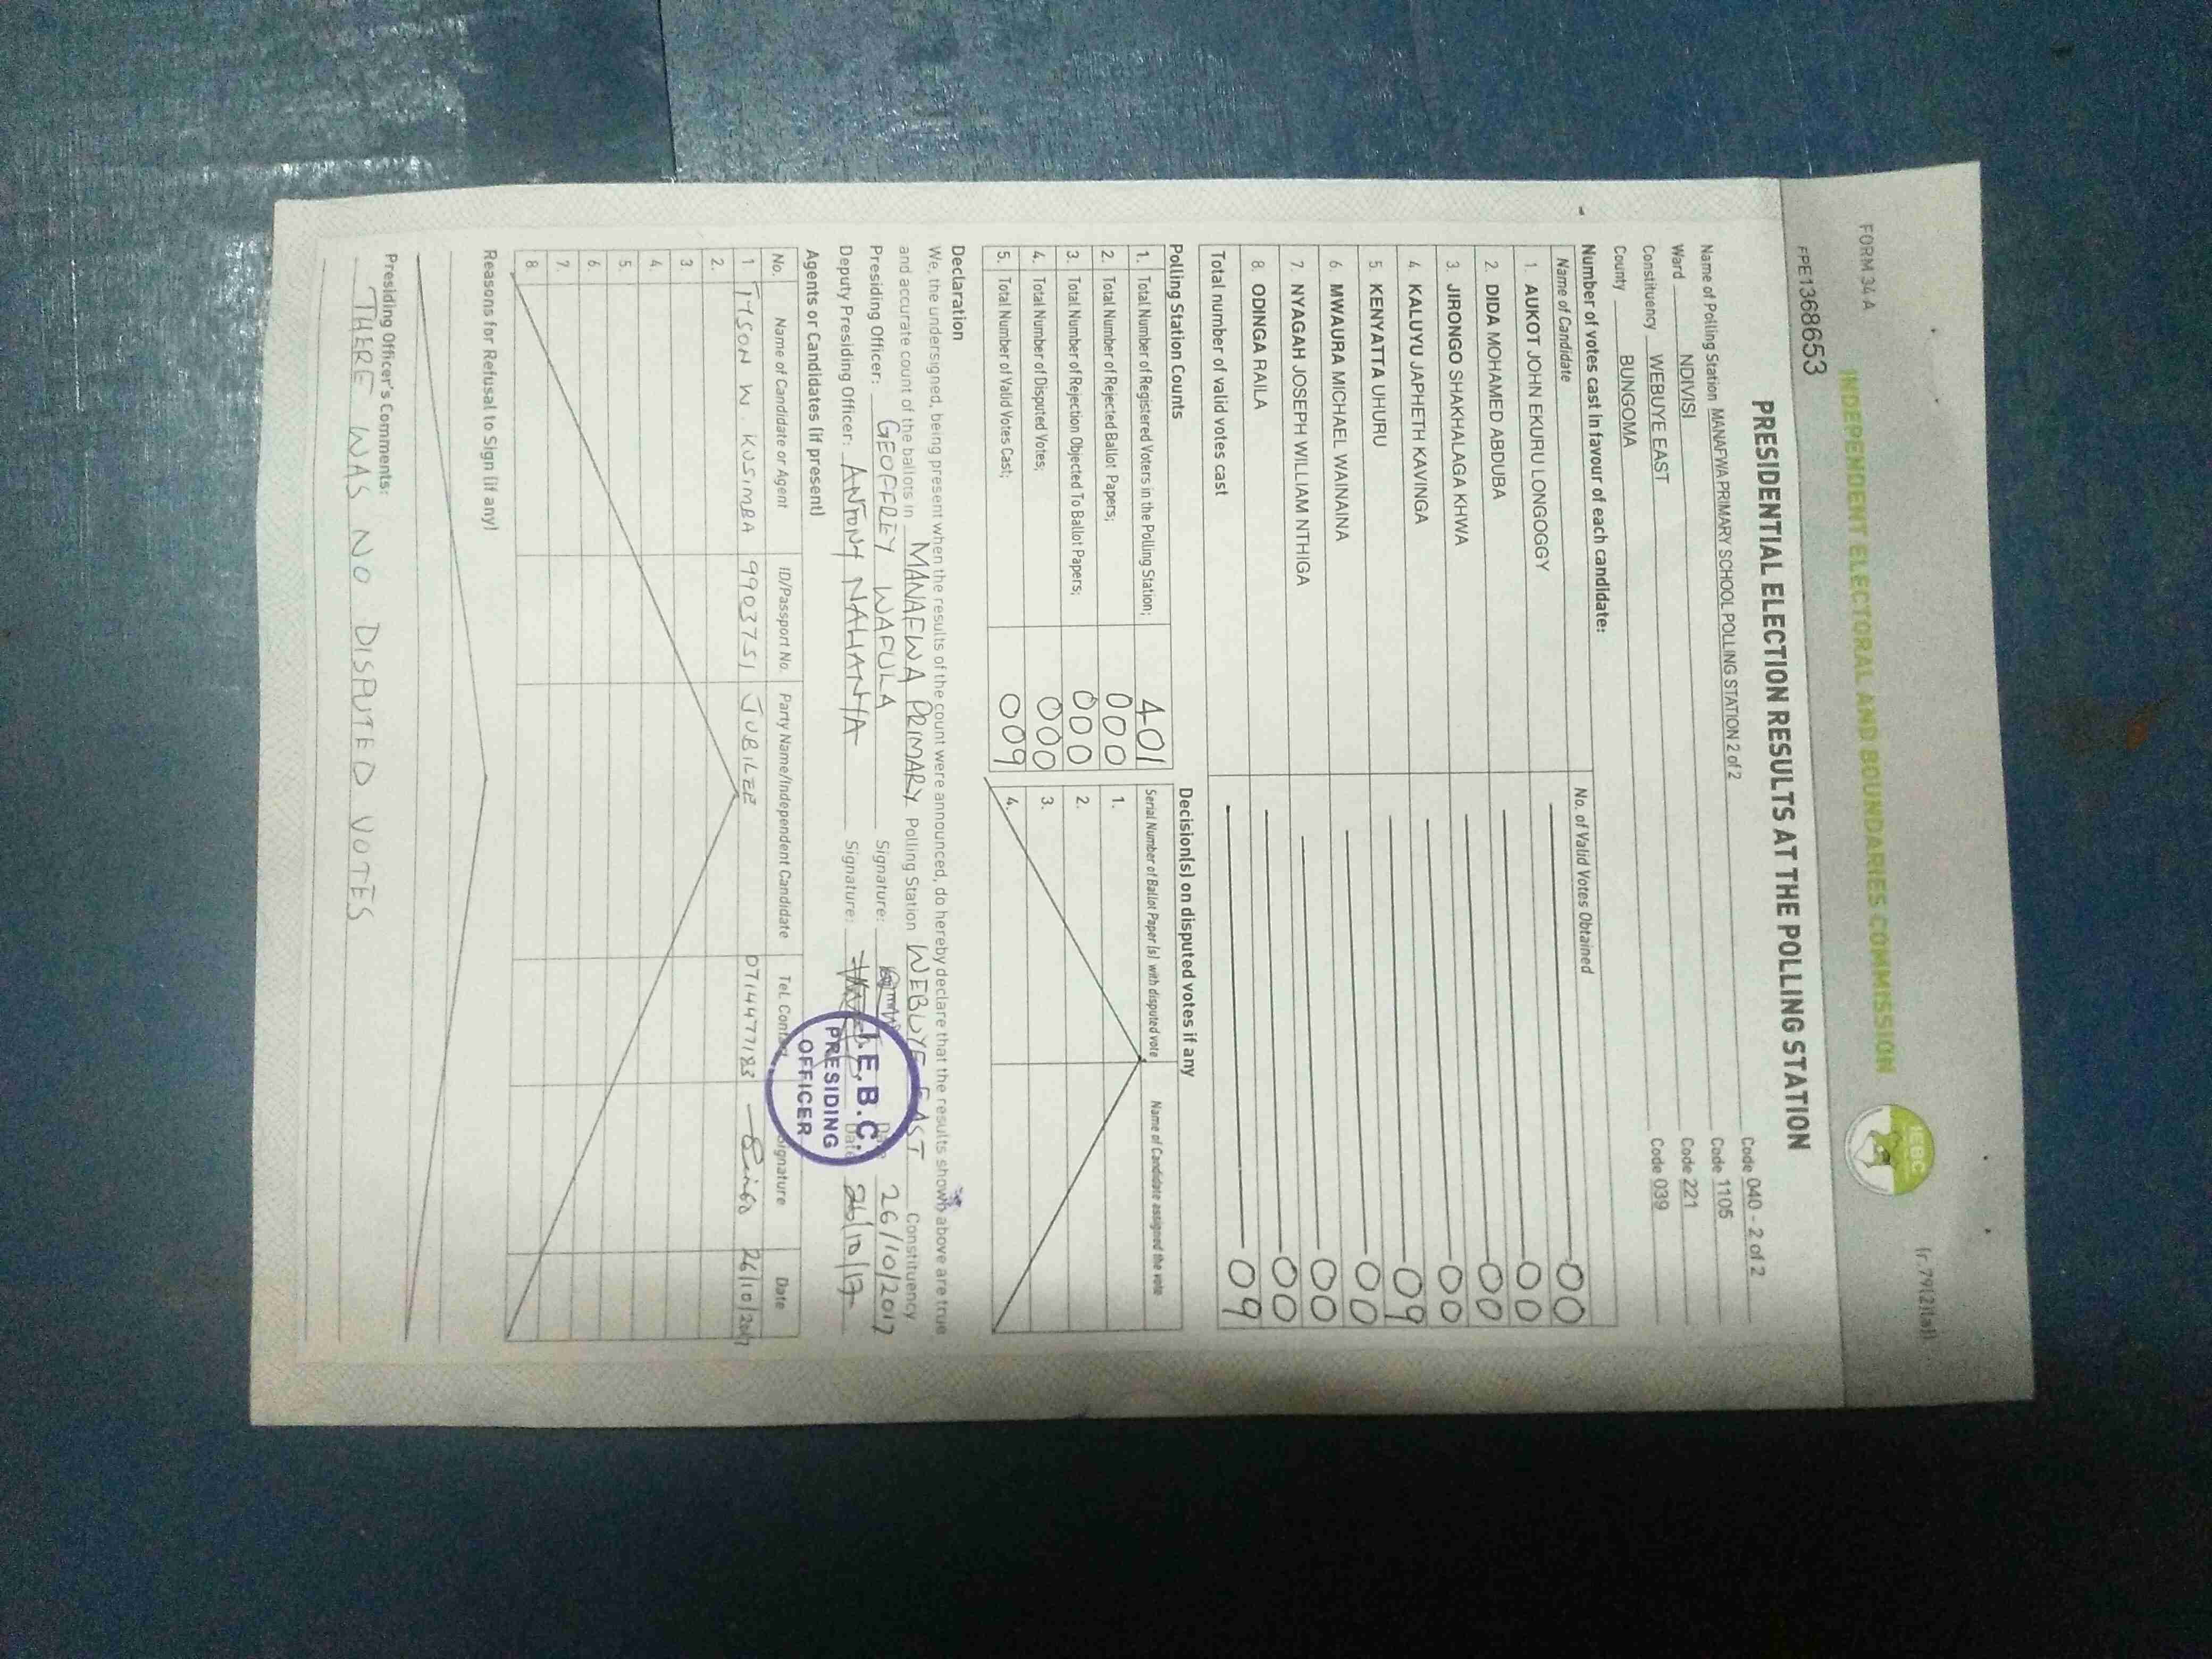 FORM 34 A
(r.79(2)(a))
INDEPENDENT ELECTORAL AND BOUNDARIES COMMISSION
IEBC
FPE1368653
PRESIDENTIAL ELECTION RESULTS AT THE POLLING STATION
Name of Polling Station MANAFWA PRIMARY SCHOOL POLLING STATION 2 of 2 Code 040 - 2 of 2
Ward NDIVISI Code 1105
Constituency WEBUYE EAST Code 221
County BUNGOMA Code 039
Number of votes cast in favour of each candidate:
Name of Candidate No. of Valid Votes Obtained
1. AUKOT JOHN EKURU LONGOGGY 00
2. DIDA MOHAMED ABDUBA 00
3. JIRONGO SHAKHALAGA KHWA 00
4. KALUYU JAPHETH KAVINGA 00
5. KENYATTA UHURU 09
6. MWAURA MICHAEL WAINAINA 00
7. NYAGAH JOSEPH WILLIAM NTHIGA 00
8. ODINGA RAILA 00
Total number of valid votes cast 09
Polling Station Counts
1. Total Number of Registered Voters in the Polling Station; 401
2. Total Number of Rejected Ballot Papers; 000
3. Total Number of Rejection Objected To Ballot Papers; 000
4. Total Number of Disputed Votes; 000
5. Total Number of Valid Votes Cast; 009
Decision(s) on disputed votes if any
Serial Number of Ballot Paper (s) with disputed vote Name of Candidate assigned the vote
1.
2.
3.
4.
Declaration
We, the undersigned, being present when the results of the count were announced, do hereby declare that the results shown above are true
and accurate count of the ballots in MANAFWA PRIMARY Polling Station WEBUYE EAST Constituency
Presiding Officer: GEOFFREY WAFULA Signature: Date 26/10/2017
Deputy Presiding Officer: ANTONY NALIANYA Signature: Date 26/10/17
I.E.B.C.
PRESIDING
OFFICER
Agents or Candidates (if present)
No. Name of Candidate or Agent ID/Passport No. Party Name/Independent Candidate Tel. Contact Signature Date
1 TYSON W. KUSIMBA 9903751 JUBILEE 0714477183 26/10/2017
2.
3
4.
5.
6.
7.
8.
Reasons for Refusal to Sign (if any)
Presiding Officer's Comments:
THERE WAS NO DISPUTED VOTES